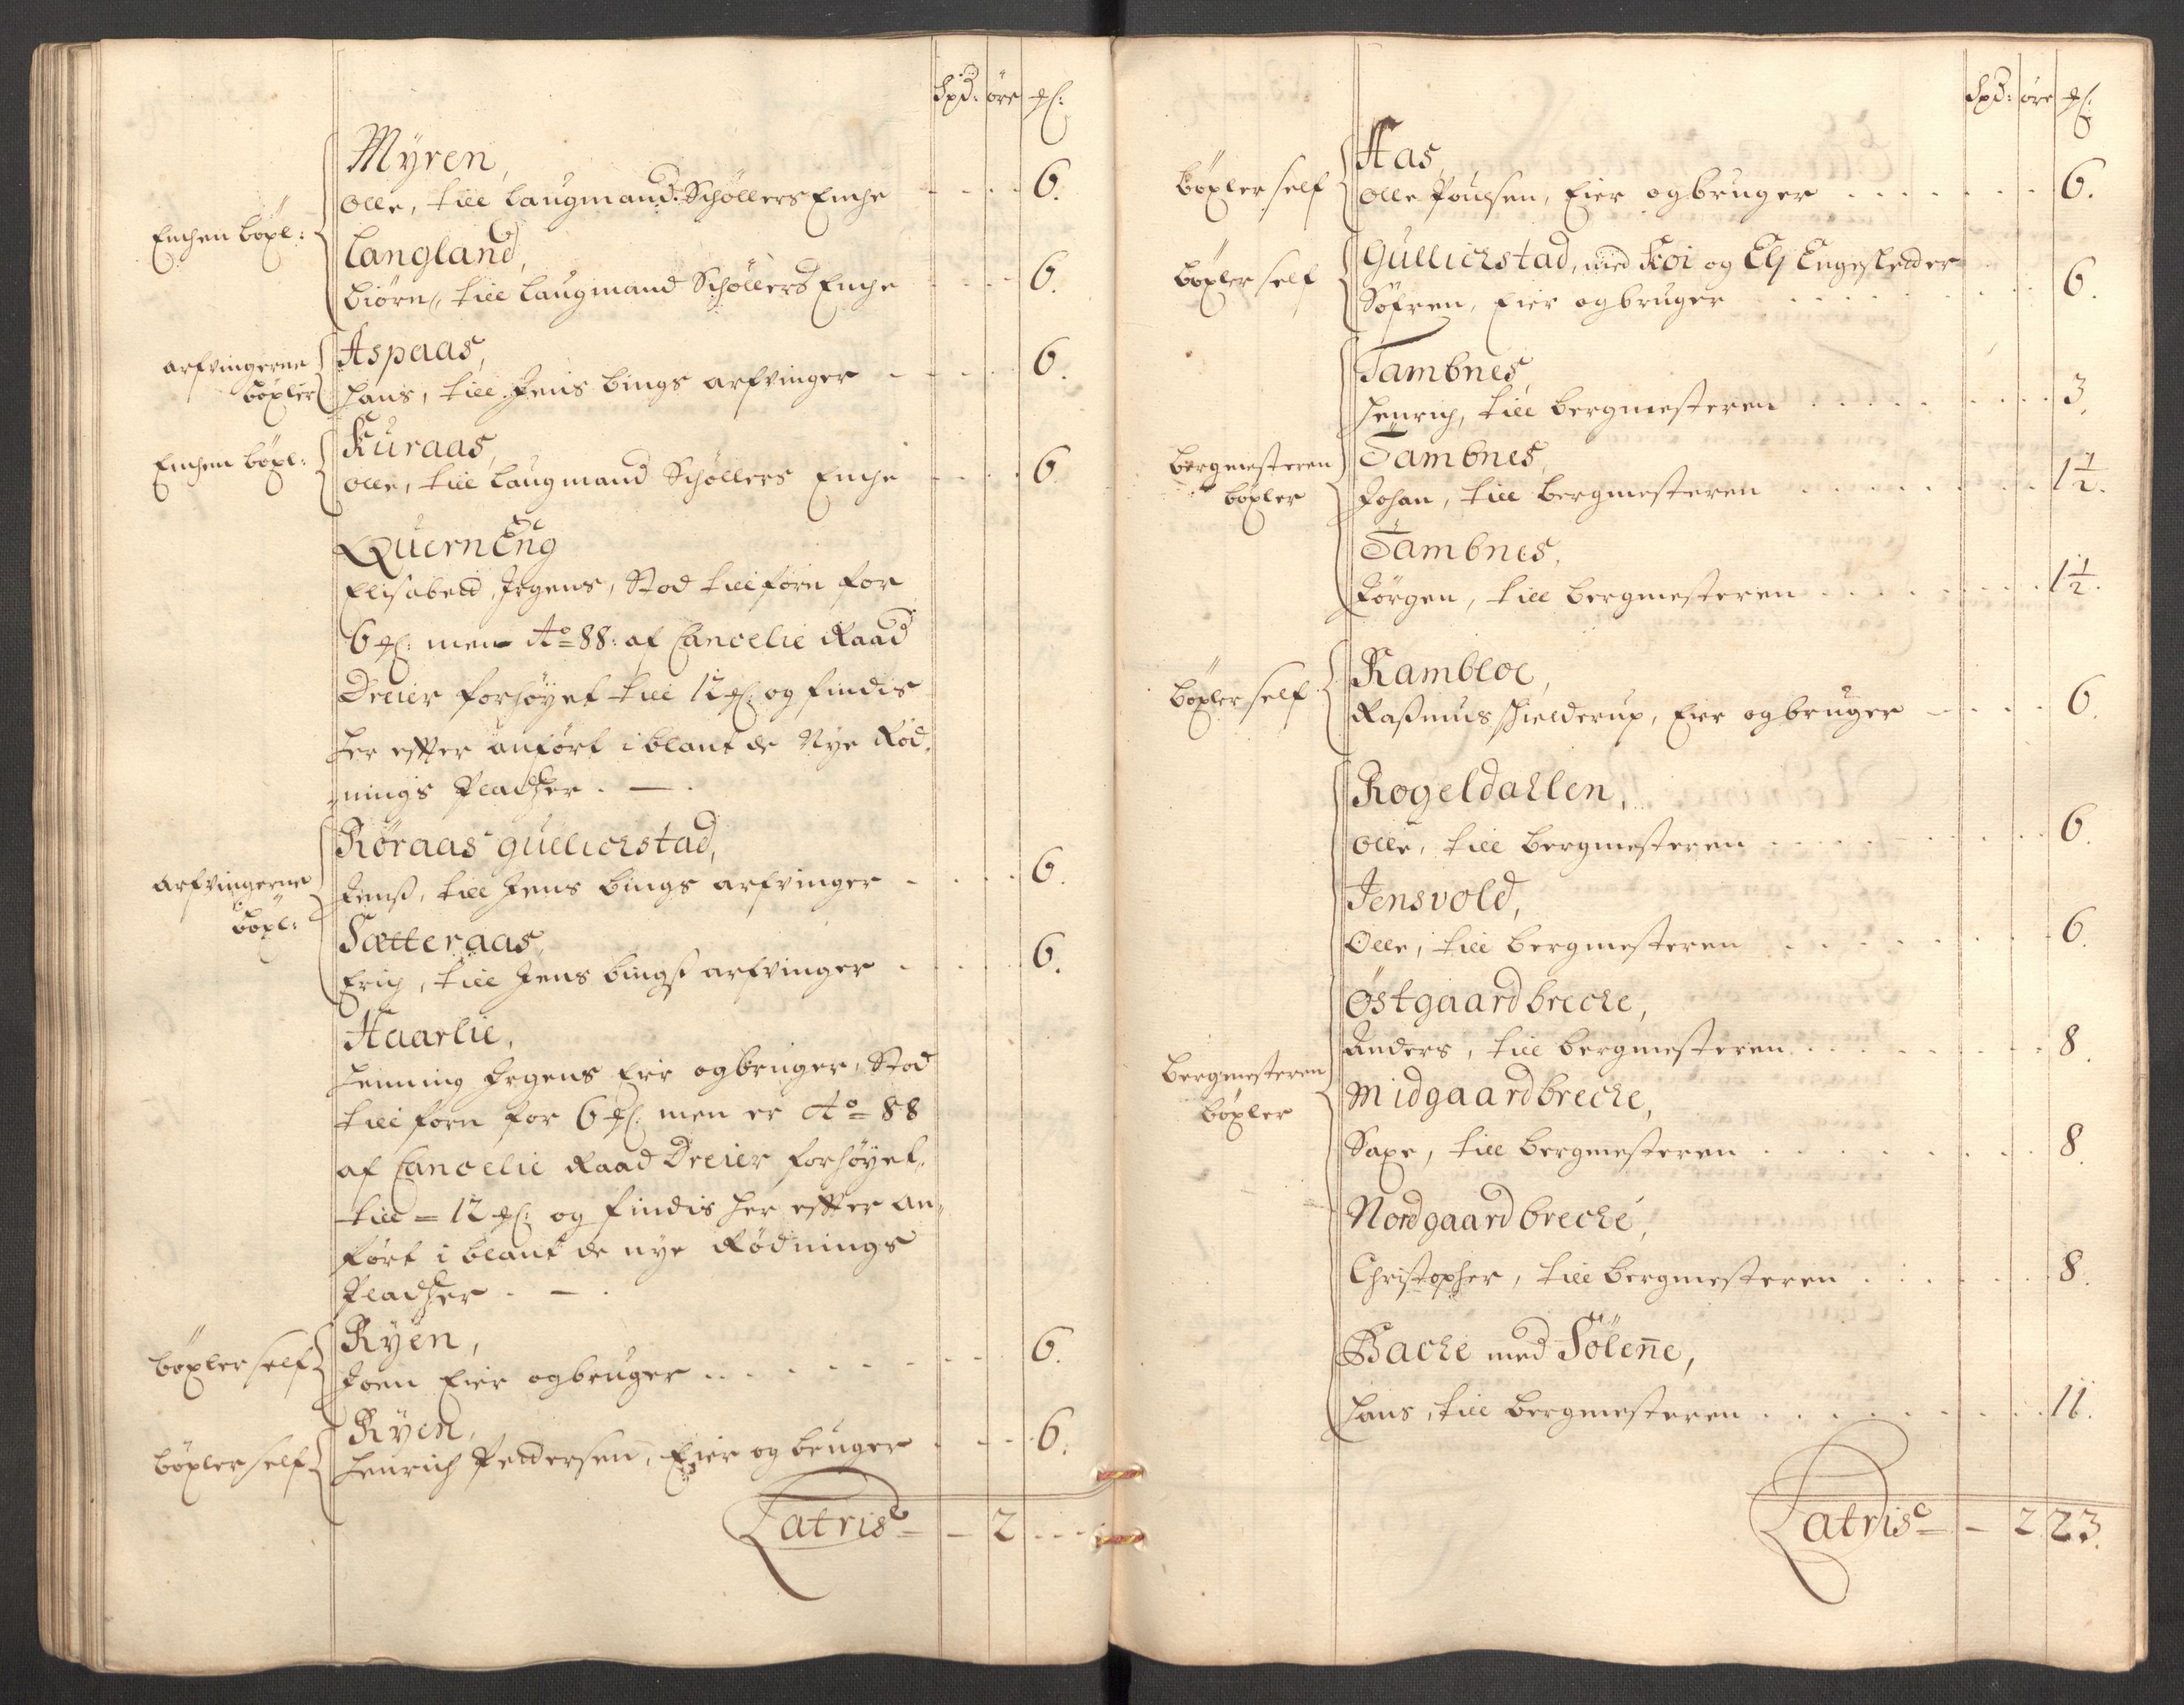 Spd: öre
Myren,
Olle, till Laugmand Schøllers Enche - - - - 6.
Enchen böxl:
Langland,
Biørn, till Laugmand Schøllers Enche - - - 6.
Arfvingerne böxler
Aspaas,
Hans, till Jens Bings arfvinger - - - - 6.
Enchen böxl:
Kuraas,
Olle, till Laugmand Schøllers Enche - - - 6
QuernEng
Elisabed Irgens, Stod till forn for
6 men Ao 88: af Cancelie Raad
Dreier forhøyet till 12 og findis
her effter anført iblant de Nye Rød,
nings Pladtzer. —.
Arfvingerne böxl:
Røraas gullichstad,
Jenß, till Jens Bings arfvinger - - - - 6.
Sætteraas,
Erich, till Jens Bingß arfvinger - - - 6.
Haarlie,
Henning Irgens Eier og bruger, Stod
till forn for 6 men er Ao 88
af Cancelie Raad Dreier forhøyet,
till = 12 og findis her effter an,
ført i blant de nye Rødnings
Pladtzer. — .
böxler self
Ryen,
Joen Eier og bruger - - - - - - 6.
böxler self
Ryen,
Henrich Peddersen, Eier og bruger - - - 6.
Latris — — 2 - - -
Spd: öre
böxler self
Aas,
Olle Poulsen, Eier og bruger . . . . . . . 6.
böxler self
Gullichstad, med Koi og Elg Engesletter
Søfren, Eier og bruger . . . . . . . . 6.
Tambnes,
Henrich, till bergmesteren . . . . . . 3.
Bergmesteren böxler
Tambnes,
Johan, till bergmesteren . . . . . . . 1 1/2.
Tambnes,
Jørgen, till bergmesteren . . . . . . . 1 1/2.
böxler self
Rambloe,
Raßmus Hielderup, Eier og bruger - - - - 6.
Rogeldallen,
Olle, till bergmesteren . . . . . . . 6.
Jensvold,
Olle, till bergmesteren . . . . . . . 6.
Østgaard breche,
Anders, till bergmesteren. . . . . . . 8.
Bergmesteren böxler
Midgaard breche,
Saxe, till bergmesteren . . . . . . . 8.
Nordgaard breche,
Christopher, till bergmesteren . . . . . . 8.
Bache med Sølenne,
Hans, till bergmesteren . . . . . . . 11.
Latris — — 2 23.